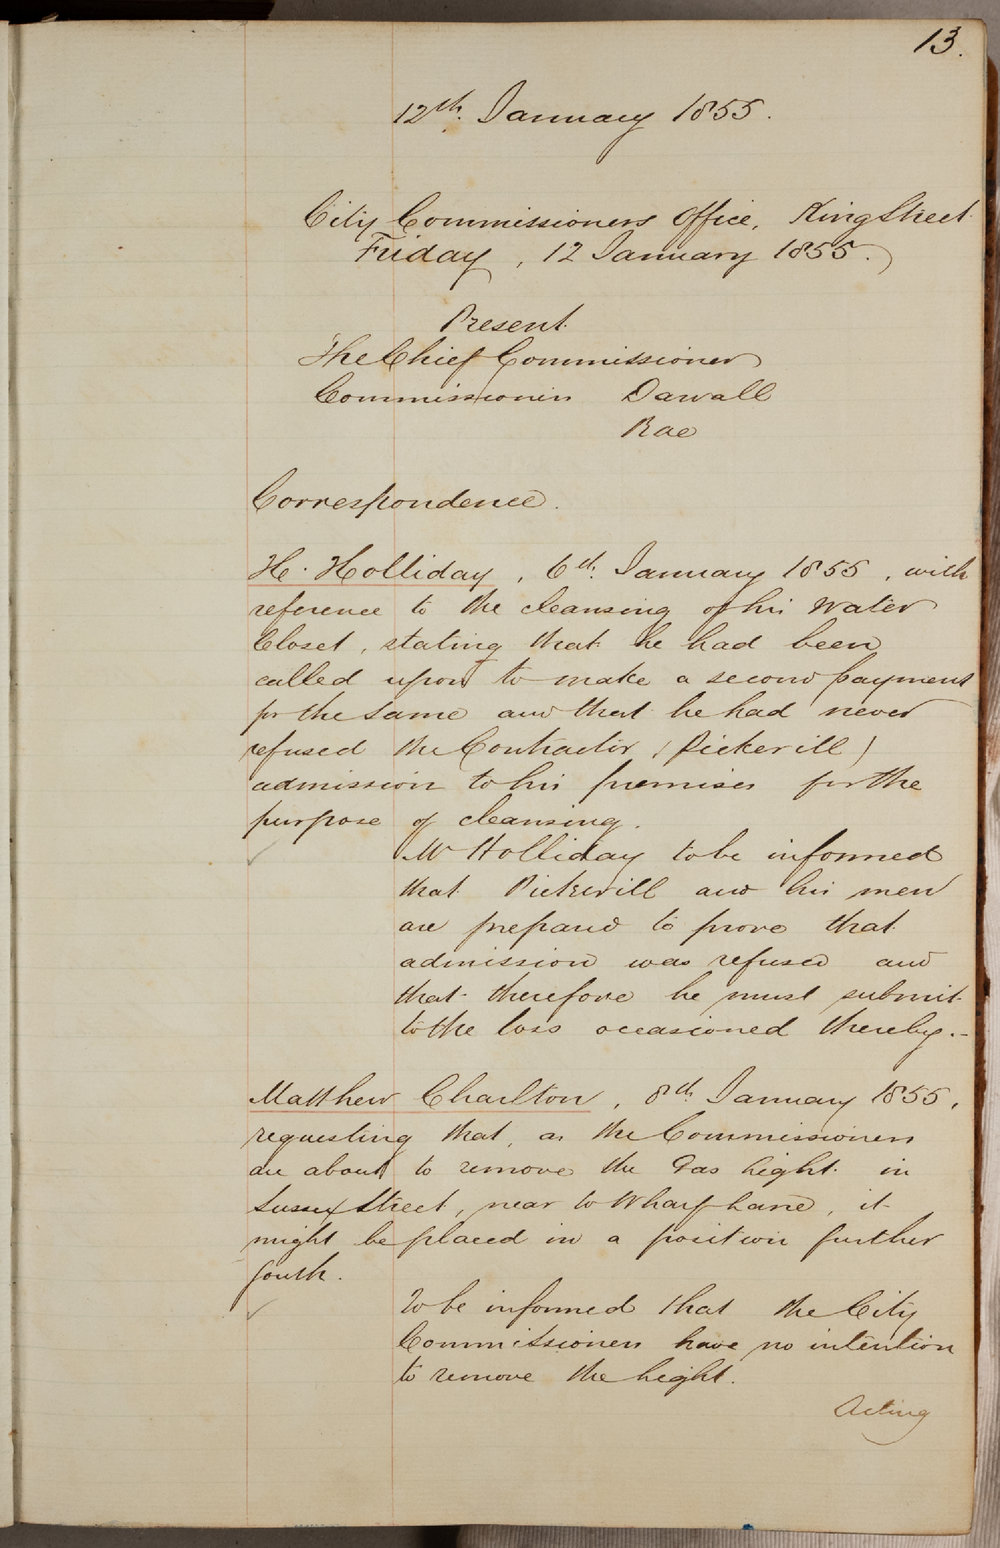 13.
12th. January 1855.
City Commissioners Office, King Street
Friday, 12 January 1855.
Present
The Chief Commissioner
Commissioners Darvall
Rae
Correspondence.
H. Holliday, 6th. January 1855, with
reference to the cleansing of his Water
Closet, stating that he had been
called upon to make a second payment
for the same and that he had never
refused the Contractor (Pickerill)
admission to his premises for the
purpose of cleansing.
Mr Holliday to be informed
that Pickerill and his men
are prepared to prove that
admission was refused and
that therefore he must submit
to the loss occasioned thereby.-
Matthew Charlton, 8th January 1855,
requesting that, as the Commissioners
are about to remove the Gas Light in
Sussex Street, near to Wharf Lane, it
might be placed in a position further
South.
To be informed that the City
Commissioners have no intention
to remove the Light.
Acting